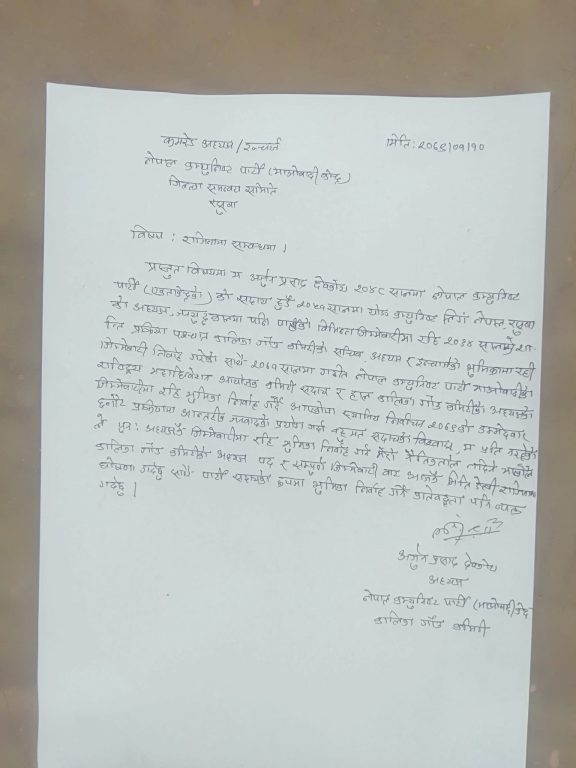 कमरेड अध्यक्ष/इन्चार्ज मिति: २०७९/०१/१०
नेपाल कम्युनिष्ट पार्टी (माओवादी केन्द्र)
जिल्ला समन्वय समिति
विषय : राजिनामा सम्बन्धमा ।
प्रस्तुत विषयमा म अर्जुन प्रसाद देवकोटा २०४८ सालमा नेपाल कम्युनिष्ट
पार्टी को सदस्य हुदै २०५१ सालमा योङ कम्युनिष्ट लिग नेपाल
को अध्यक्ष, सालमा पार्टी जिम्मेवारीमा रहि २०७४ सालमा
प्रक्रिया पश्चात कालिका गाँउ कमिटीको सचिव, अध्यक्ष र इन्चार्जको भुमिकामा रही
जिम्मेवारी निर्वाह गरेको साथै २०७१ सालमा गठित नेपाल कम्युनिष्ट पार्टी माओवादीको
राष्ट्रिय महाधिवेशन आयोजक कमिटी सदस्य र हाल कालिका गाँउ कमिटीको अध्यक्षको
जिम्मेवारीमा रहि भुमिका निर्वाह गर्दै स्थानिय निर्वाचन २०७९को उम्मेदवार
छनौट प्रक्रियामा आन्तरिक जनवादको प्रयोग गर्दा बहुमत सदस्यको विश्वास, म प्रति
पुन: अध्यक्षको जिम्मेवारीमा रहि भुमिका निर्वाह गर्न मेरो नैतिकताले
कालिका गाँउ कमिटीको अध्यक्ष पद र सम्पूर्ण जिम्मेवारी बाट आजकै मिति देखी राजिनामा
घोषणा गर्दछु साथै पार्टी सदस्यको रुपमा भुमिका निर्वाह गर्ने प्रतिबद्धता पनि व्यक्त
गर्दछु ।
अर्जुन प्रसाद देवकोटा
अध्यक्ष
नेपाल कम्युनिष्ट पार्टी (माओवादी केन्द्र
कालिका गाँउ कमिटी